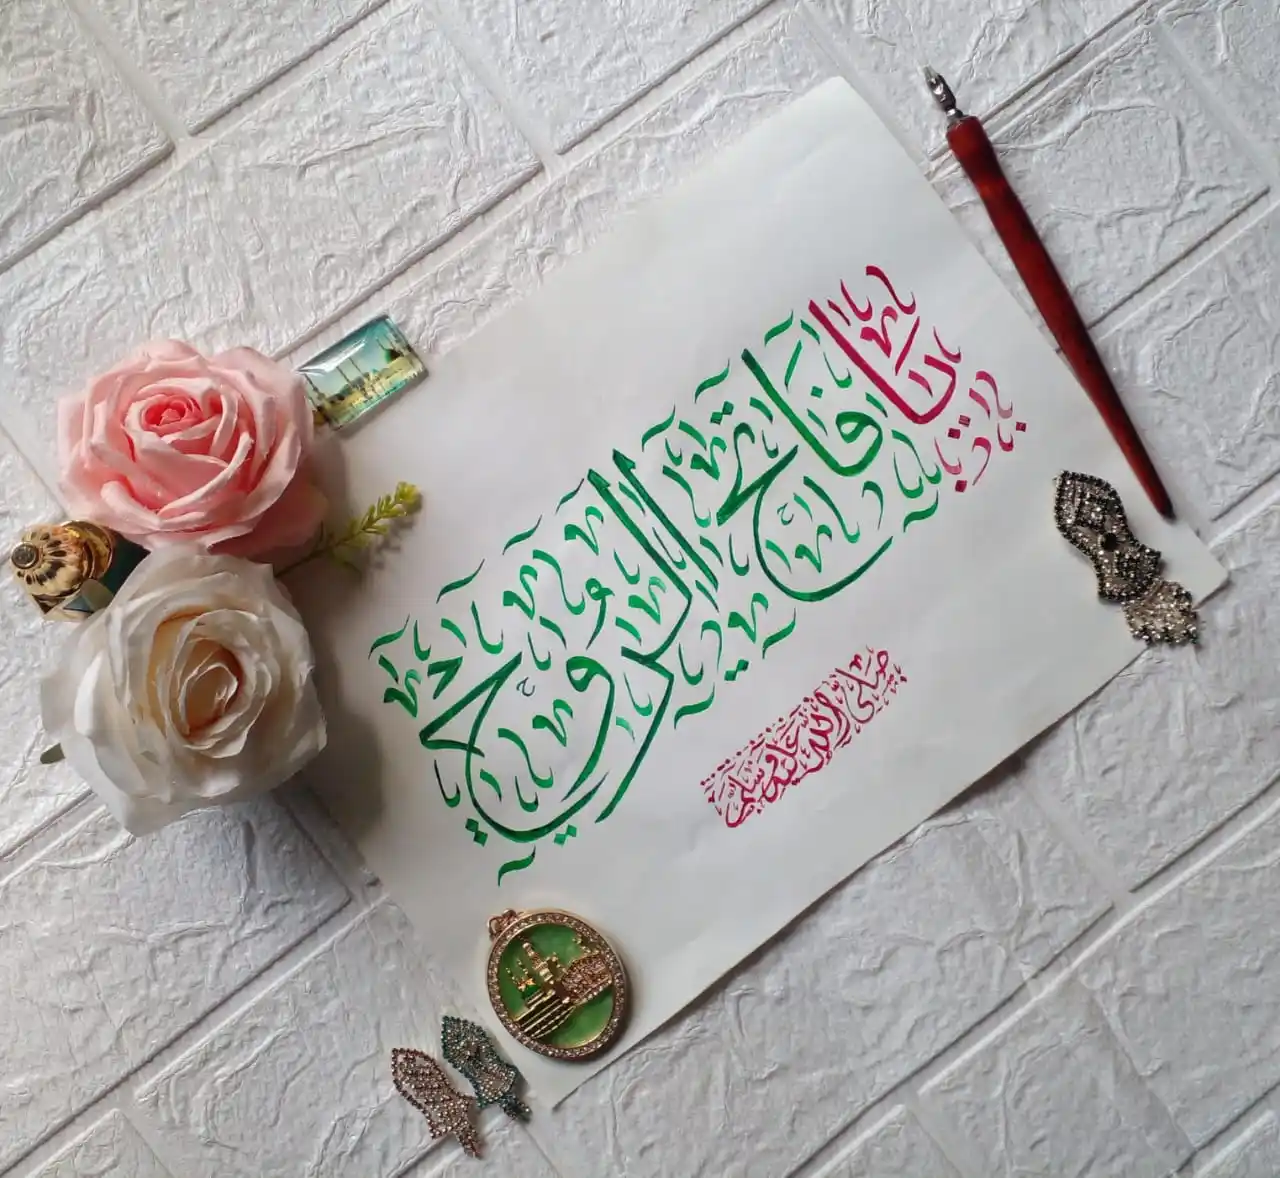 يا فاتح الروح
صلى الله عليه وسلم